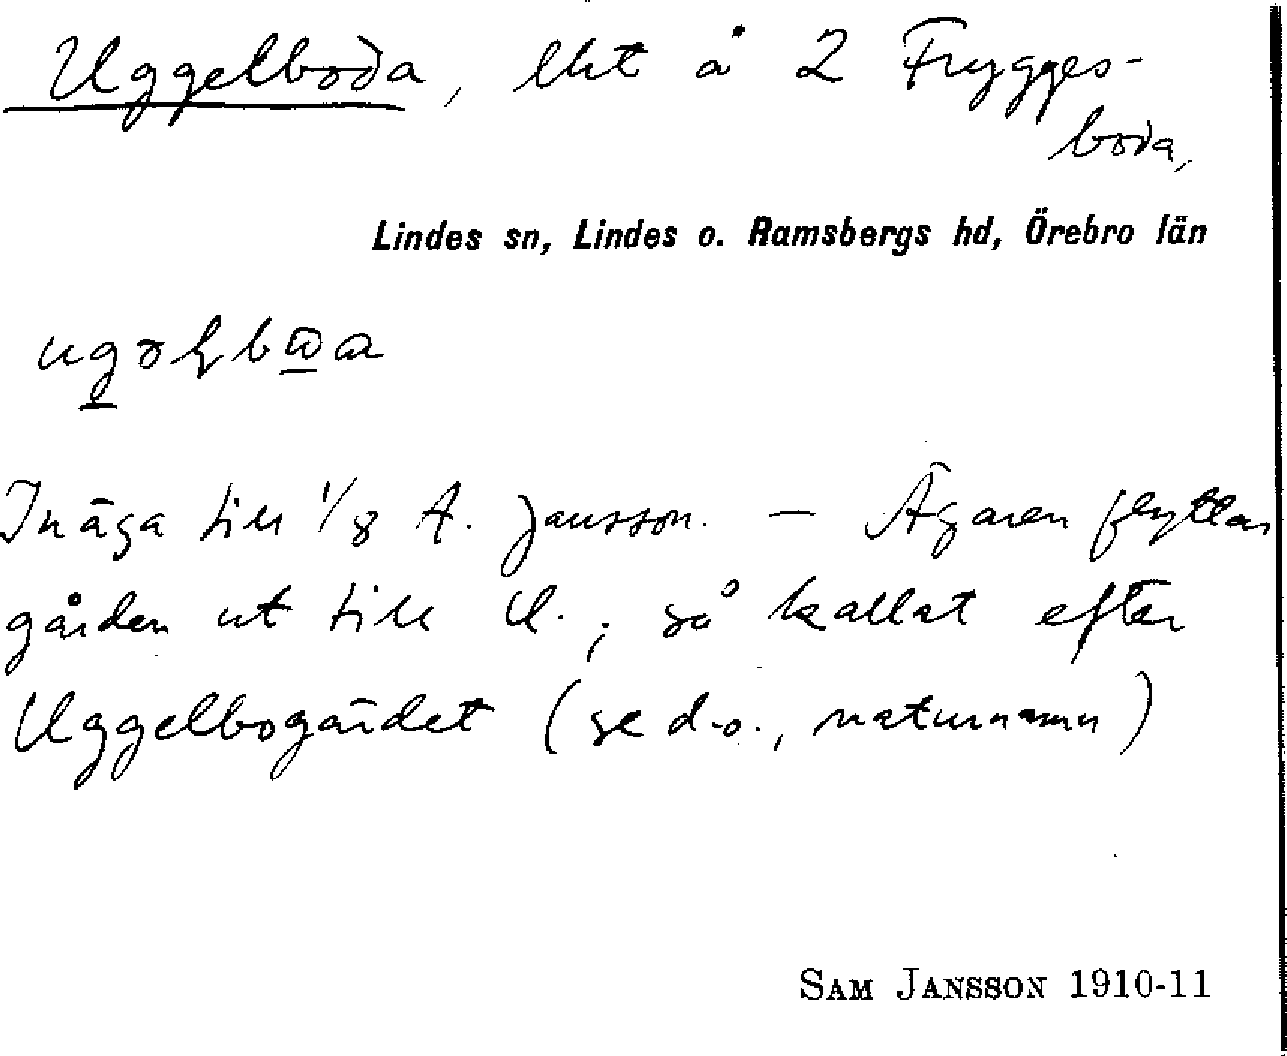 Uggelboda, lht å 2 Frygges-
boda,
Lindes sn, Lindes o. Ramsbergs hd, Örebro län
Inäga till 1/8 A. Jansson. — Ägaren flyttar
gården ut till U.; så kallat efter
Uggelbogärdet (se d.o., naturnamn)
SAM JANSSON 1910-11